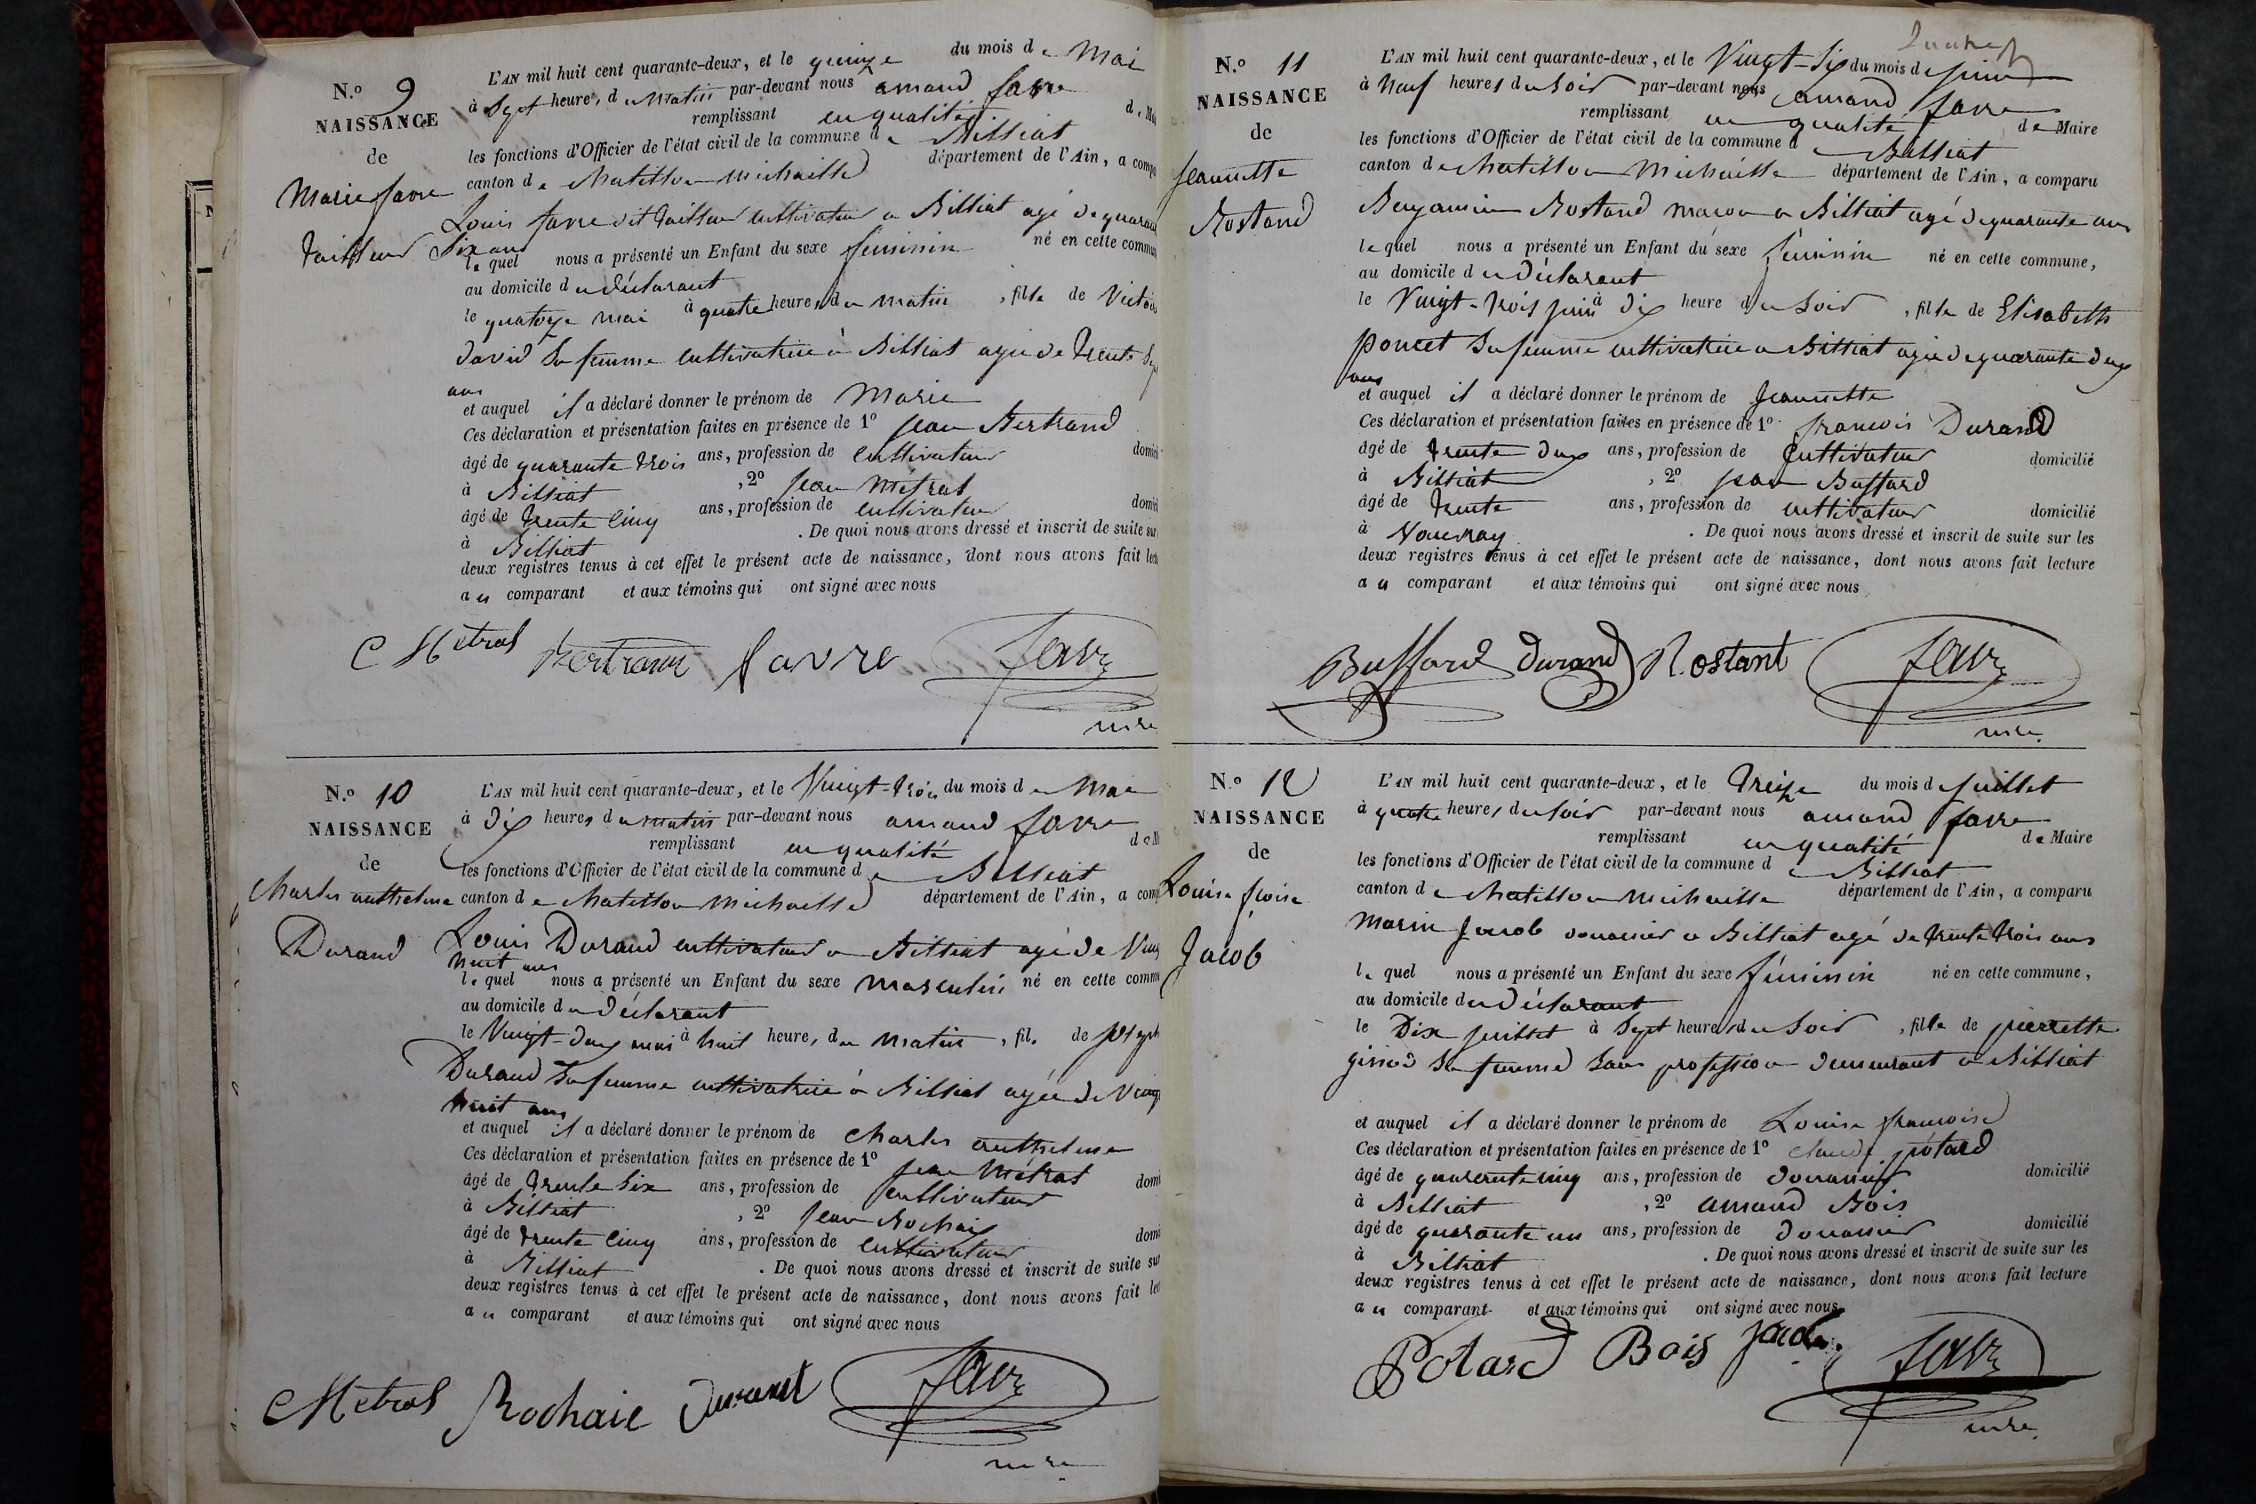 N.º 9
NAISSANCE
de
Marie favre
tailleur
L'AN mil huit cent quarante-deux, et le quinze du mois de Mai
à Sept heures du Matin par-devant nous amand favre
remplissant en qualité de
les fonctions d'Officier de l'état civil de la commune de Billiat
canton de chatillon michaille département de l'Ain, a
Louis favre dit tailleur cultivateur a Billiat agé de
Six ans
lequel nous a présenté un Enfant du sexe feminin né en cette
au domicile du déclarant
le quatorze mai à quatre heures du matin, fille de
david sa femme cultivatrice à Billiat agée de trente
ans
et auquel il a déclaré donner le prénom de Marie
Ces déclaration et présentation faites en présence de 1º jean Bertrand
âgé de quarante trois ans, profession de cultivateur
à Billiat, 2º jean Métral
âgé de trente cinq ans, profession de cultivateur
à Billiat. De quoi nous avons dressé et inscrit de suite sur
deux registres tenus à cet effet le présent acte de naissance, dont nous avons fait
au comparant et aux témoins qui ont signé avec nous
Métral Bertrand favre favre
mre
N.º 10
NAISSANCE
de
Charles anthelme
Durand
L'AN mil huit cent quarante-deux, et le Vingt-trois du mois de Mai
à dix heures du matin par-devant nous amand favre
remplissant en qualité de
les fonctions d'Officier de l'état civil de la commune de Billiat
canton de chatillon michaille département de l'Ain, a
Louis Durand cultivateur a Billiat agé de
huit ans
lequel nous a présenté un Enfant du sexe masculin né en cette
au domicile du déclarant
le Vingt-deux mai à huit heures du matin, fils de
Durand sa femme cultivatrice à Billiat agée de
huit ans
et auquel il a déclaré donner le prénom de charles anthelme
Ces déclaration et présentation faites en présence de 1º jean Métral
âgé de trente six ans, profession de cultivateur
à Billiat, 2º jean Rochaix
âgé de trente cinq ans, profession de cultivateur
à Billiat. De quoi nous avons dressé et inscrit de suite sur
deux registres tenus à cet effet le présent acte de naissance, dont nous avons fait
au comparant et aux témoins qui ont signé avec nous
Métral Rochaie Durand favre
mre
N.º 11
NAISSANCE
de
Jeannette
Rostand
L'AN mil huit cent quarante-deux, et le Vingt-Six du mois de juin
à Neuf heures du Soir par-devant nous amand favre
remplissant en qualité de Maire
les fonctions d'Officier de l'état civil de la commune de Billiat
canton de chatillon Michaille département de l'Ain, a comparu
Benjamin Rostand macon a Billiat agé de quarante ans
lequel nous a présenté un Enfant du sexe féminin né en cette commune,
au domicile du déclarant
le Vingt-trois juin à dix heure du Soir, fille de Elisabeth
poncet sa femme cultivatrice a Billiat agée de quarante deux
ans
et auquel il a déclaré donner le prénom de Jeannette
Ces déclaration et présentation faites en présence de 1º francois Durand
âgé de trente deux ans, profession de cultivateur domicilié
à Billiat, 2º jean Buffard
âgé de trente ans, profession de cultivateur domicilié
à. De quoi nous avons dressé et inscrit de suite sur les
deux registres tenus à cet effet le présent acte de naissance, dont nous avons fait lecture
au comparant et aux témoins qui ont signé avec nous
Buffard Durand Rostant favre
mre
N.º 12
NAISSANCE
de
Louise
Jacob
L'AN mil huit cent quarante-deux, et le treize du mois de juillet
à quatre heures du Soir par-devant nous amand favre
remplissant en qualité de Maire
les fonctions d'Officier de l'état civil de la commune de Billiat
canton de chatillon michaille département de l'Ain, a comparu
Marin Jacob douanier a Billiat agé de trente trois ans
lequel nous a présenté un Enfant du sexe féminin né en cette commune,
au domicile du déclarant
le Dix juillet à Sept heures du Soir, fille de pierrette
sa femme sans profession demeurant a Billiat
et auquel il a déclaré donner le prénom de Louise francoise
Ces déclaration et présentation faites en présence de 1º claude potard
âgé de quarante cinq ans, profession de douanier domicilié
à Billiat, 2º amand Bois
âgé de quarante un ans, profession de douanier domicilié
à Billiat. De quoi nous avons dressé et inscrit de suite sur les
deux registres tenus à cet effet le présent acte de naissance, dont nous avons fait lecture
au comparant et aux témoins qui ont signé avec nous
Potard Bois Jacob favre
mre